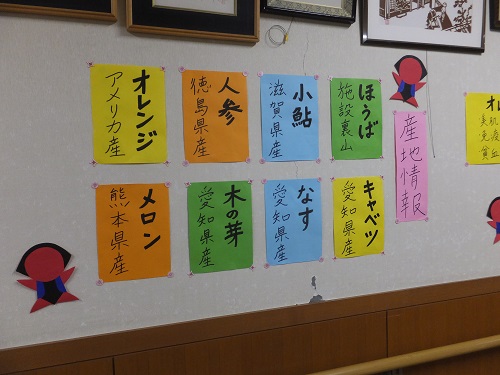 産地情報
ほうば
施設裏山
小鮎
滋賀県産
人参
徳島県産
オレンジ
アメリカ産
キャベツ
愛知県産
なす
愛知県産
木の芽
愛知県産
メロン
熊本県産